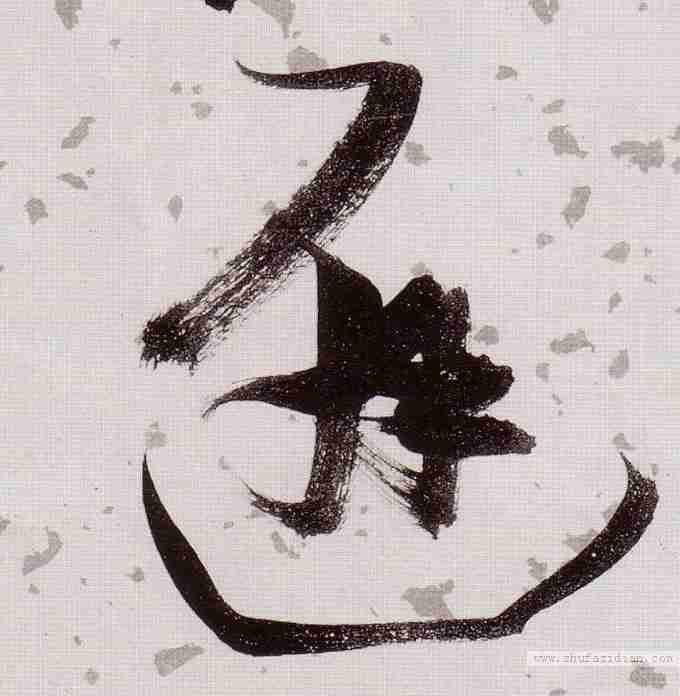 函
www.shufazidian.com